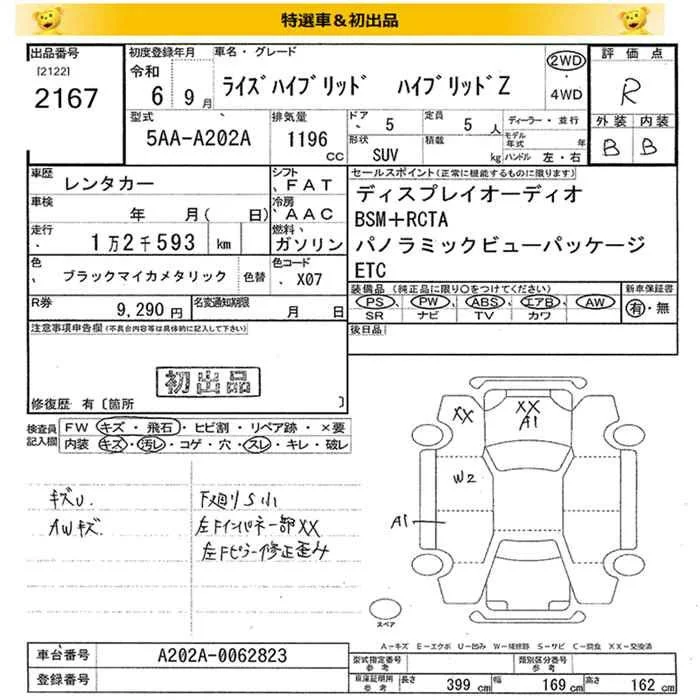 特選車&初出品
出品番号 初度登録年月 車名・グレード 2WD 評価点
[2122] 令和
2167 6 9月 ライズハイブリッド ハイブリッドZ ・ 4WD R
型式 排気量 ドア 定員 ディーラー・並行 外装 内装
5AA-A202A 1196 CC 、5 5人 モデル年式 年 B B
形状 SUV 積載 kg ハンドル 左・右
車歴 レンタカー シフト 、FAT セールスポイント(正常に機能するものに限ります)
車検 年 月( 日) 冷房 、AAC ディスプレイオーディオ
BSM+RCTA
走行 1万2千593 km 燃料 、ガソリン パノラミックビューパッケージ
ETC
色 ブラックマイカメタリック 色替 色コード 、X07
装備品(純正品に限り○をつけてください) 新車保証書
R券 9,290円 名変通知期限 月 日 PS・PW・ABS・エアB・AW 有・無
SR ナビ TV カワ
注意事項申告欄(不具合内容等は具体的に記入して下さい) 後日品
初出品
修復歴 有〔箇所 〕
検査員記入欄 FW キズ・飛石・ヒビ割・リペア跡・×要
内装 キズ・汚レ・コゲ・穴・スレ・キレ・破レ
XX XX
A1
W2
A1
キズU. 下廻りS小
AWキズ. 左Fインパネ一部XX
左Fピラー修正歪み
スペア
A-キズ E-エクボ U-凹み W-補修跡 S-サビ C-腐食 XX-交換済
車台番号 A202A-0062823 型式指定番号 参考 類別区分番号 参考
登録番号 車庫証明用 参考 長さ 399 cm 幅 169 cm 高さ 162 cm